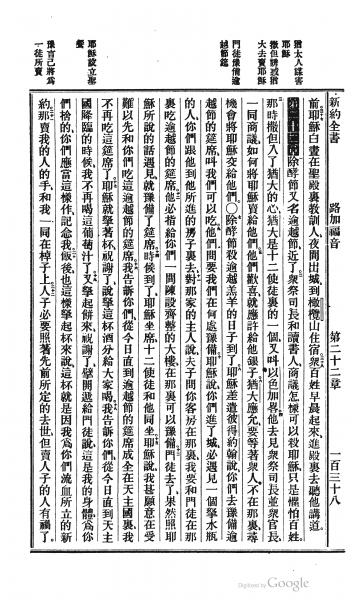 新約全書 路加福音 第二十二章 一百三十八
猶大人謀害
耶穌
撒但誘惑猶
大去賣耶穌
門徒豫備逾
越節筵
耶穌設立聖
餐
豫言己將為
一徒所賣
前耶穌白晝在聖殿裏教訓人夜間出城到橄欖山住宿衆百姓早晨起來進殿裏去聽他講道
第二十二章除酵節又名逾越節近了衆祭司長和讀書人商議怎樣可以殺耶穌只是懼怕百姓
那時撒但入了猶大的心猶大是十二使徒裏的一個又叫以色加畧他去見衆祭司長並衆官長
一同商議如何將耶穌賣給他們他們歡喜就應許給他銀子猶大應允要等著衆人不在那裏尋
機會將耶穌交給他們〇除酵節殺逾越羔羊的日子到了耶穌差遣彼得約翰說你們去豫備逾
越節的筵席叫我們可以吃他們問要我們在何處豫備耶穌說你們進了城必遇見一個拏水瓶
的人你們跟他到他所進的房子裏去對那家的主人說夫子問你客房在那裏我要和門徒在那
裏吃逾越節的筵席他必指給你們一間陳設齊整的大樓在那裏可以豫備門徒去了果然照耶
穌所說的話遇見就豫備了筵席時候到了耶穌坐席十二使徒和他同坐耶穌說我甚願意在受
難以先和你們吃這逾越節的筵席我告訴你們從今日直到逾越節的筵席成全在天主國裏我
不再吃這筵席了耶穌就擧著杯祝謝了說拏這杯酒分給大家喝我告訴你們從今日直到天主
國降臨的時候我不再喝這葡萄汁了又拏起餅來祝謝了擘開遞給門徒說這是我的身體爲你
們捨的你們應當這樣作記念我飯後也這樣拏起杯來說這杯就是因我爲你們流血所立的新
約那賣我的人的手和我一同在棹子上人子必要照著先前所定的去世但賣人子的人有禍了
Digitized by Google